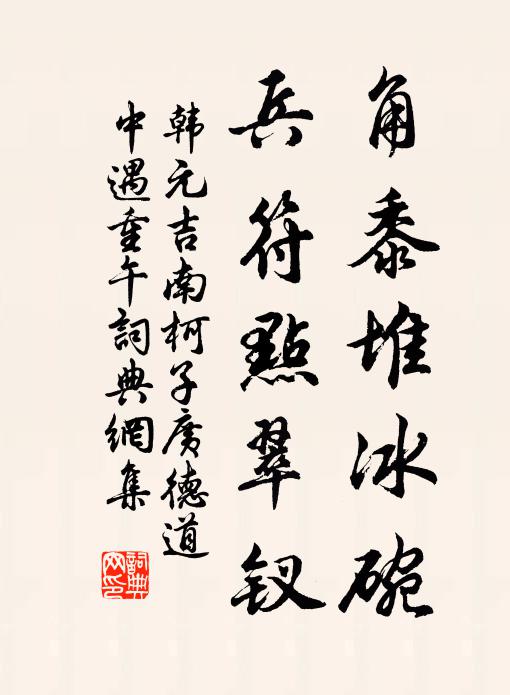 角黍堆冰碗
兵符點翠钗
韩元吉南柯子廣德道
中遇重午詞典網集
詞典
网印